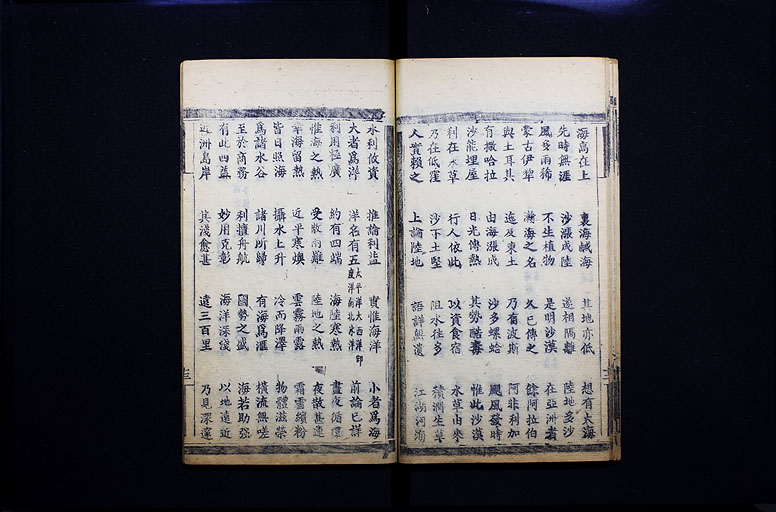 海高在上 裏海鹹海 其地亦低 想有大海
先時無涯 沙漲成陸 遂相隔離 陸地多沙
風多雨稀 不生植物 是明沙漠 在亞洲者
蒙古伊犂 瀚海之名 久已傳之 餘阿拉伯
與土耳其 迤及東土 乃有波斯 阿非利加
有撒哈拉 由海漲成 沙多螺蛤 颶風發時
沙能埋屋 日光傳熱 其勢酷毒 惟此沙漠
利在水草 行人依此 以資食宿 水草由來
乃在低窪 沙下土堅 阻水往多 積潤生草
人實賴之 上論陸地 語詳無遺 江湖河海
水利攸資 推論利益 實惟海洋 小者爲海
大者爲洋 洋名有五 太平洋大西洋印度洋南北冰洋 前論已詳
利用極廣 約有四端 海陸寒熱 晝夜循環
惟海之熱 受散而難 陸地之熱 夜散甚速
華海留熱 近平寒燠 雲霧雨露 霜雪繽粉
皆日照海 攝水上升 冷而降澤 物體滋榮
爲諸水谷 諸川所歸 有海爲滙 橫流無嗟
至於商務 利擅舟航 國勢之盛 海若助強
有此四益 妙用克彰 海洋深淺 以地遠近
近洲島岸 其淺愈甚 遠三百里 乃見深邃